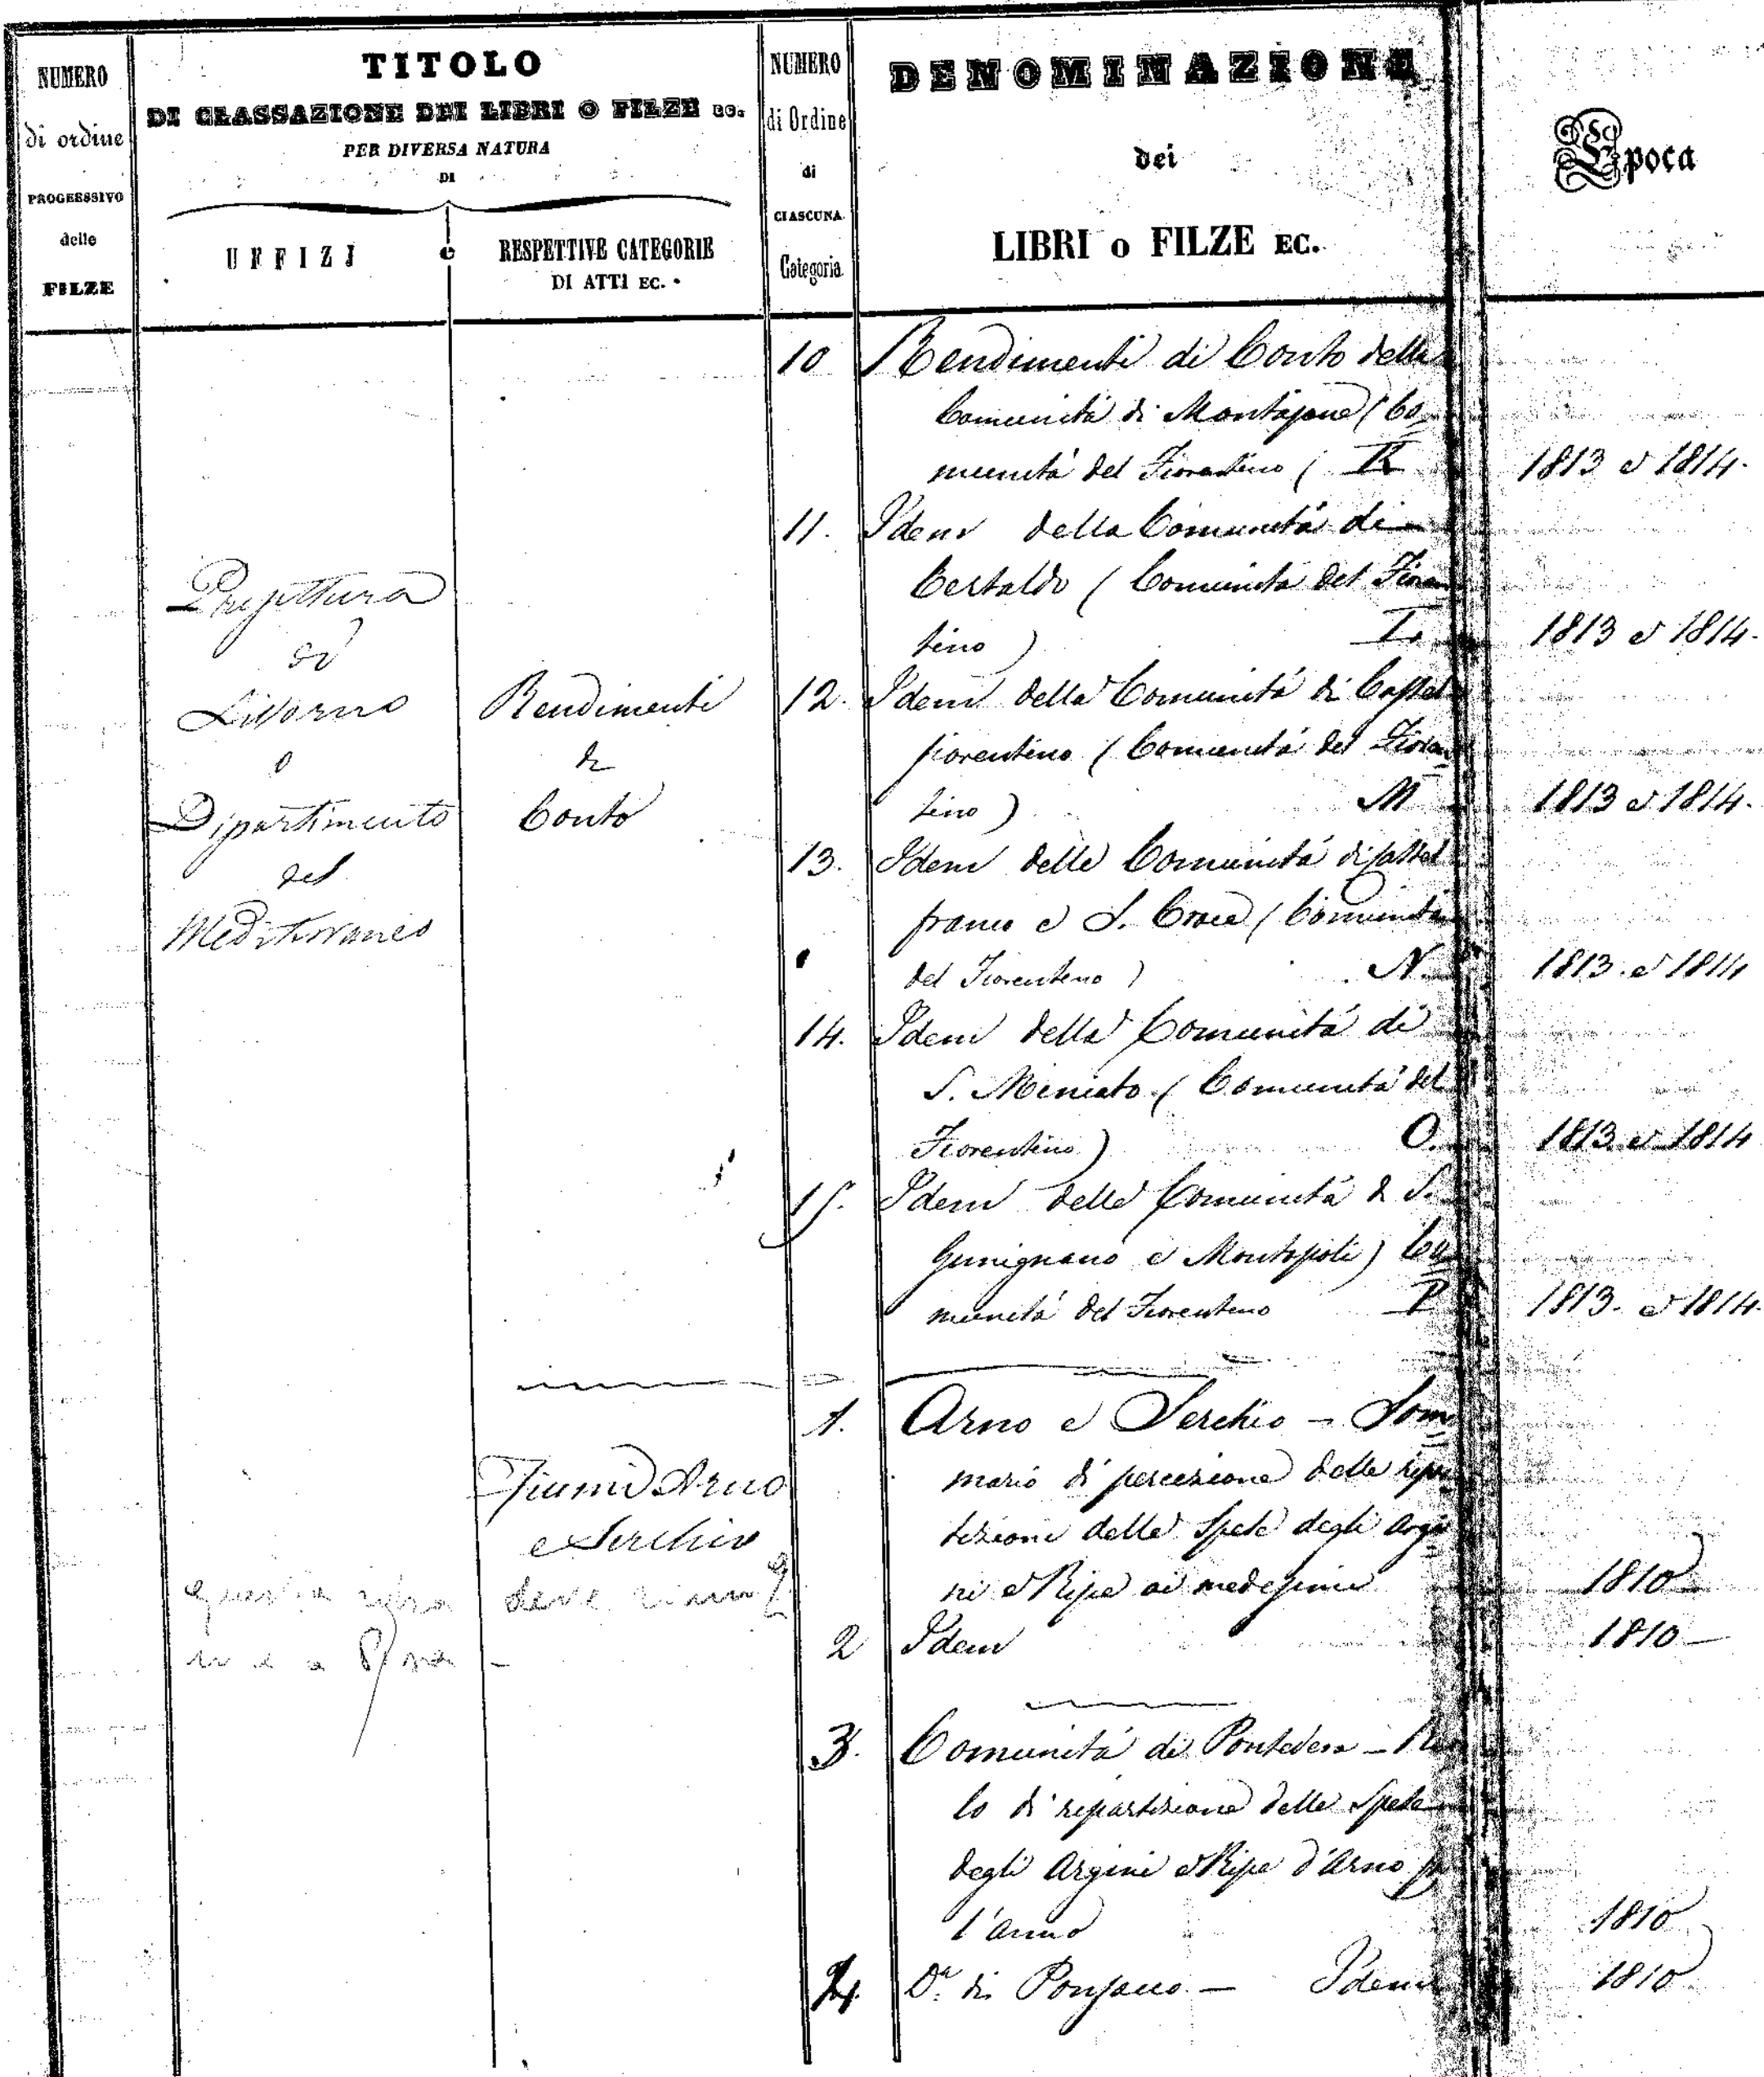 NUMERO
di ordine
PROGRESSIVO
delle
FILZE
TITOLO
DI CLASSAZIONE DEI LIBRI O FILZE EC.
PER DIVERSA NATURA
DI
UFFIZJ
e
RESPETTIVE CATEGORIE
DI ATTI EC.
NUMERO
di Ordine
di
CIASCUNA
Categoria
DENOMINAZIONE
dei
LIBRI o FILZE EC.
Epoca
Prefettura
di
Livorno
o
Dipartimento
del
Mediterraneo
Rendimenti
di
Conto
10 Rendimenti di Conto della
Comunità di Montajone (Co=
munità del Fiorentino ( K 1813 e 1814.
11. Idem della Comunità di
Certaldo (Comunità del Fioren
tino) L. 1813 e 1814.
12. Idem della Comunità di Castel
fiorentino (Comunità del Fioren
tino) M 1813 e 1814.
13. Idem delle Comunità di Castel
franco e S. Croce (Comunità
del Fiorentino) N. 1813. e 1814
14. Idem della Comunità di
S. Miniato (Comunità del
Fiorentino) O. 1813 e 1814
15. Idem delle Comunità di S.
Gimignano e Montopoli) Co
munità del Fiorentino P 1813. e 1814.
Fiumi Arno
e Serchio
1. Arno e Serchio - Som
mario di percezione delle repar
tizioni delle Spese degli Argi
ni e Ripe ai medesimi 1810
2 Idem 1810
questa deve
a Pisa
3. Comunità di Pontedera -
lo di repartizione delle Spese
degli Argini e Ripe d'Arno p
l'anno 1810
4. Da. di Ponsacco - Idem 1810